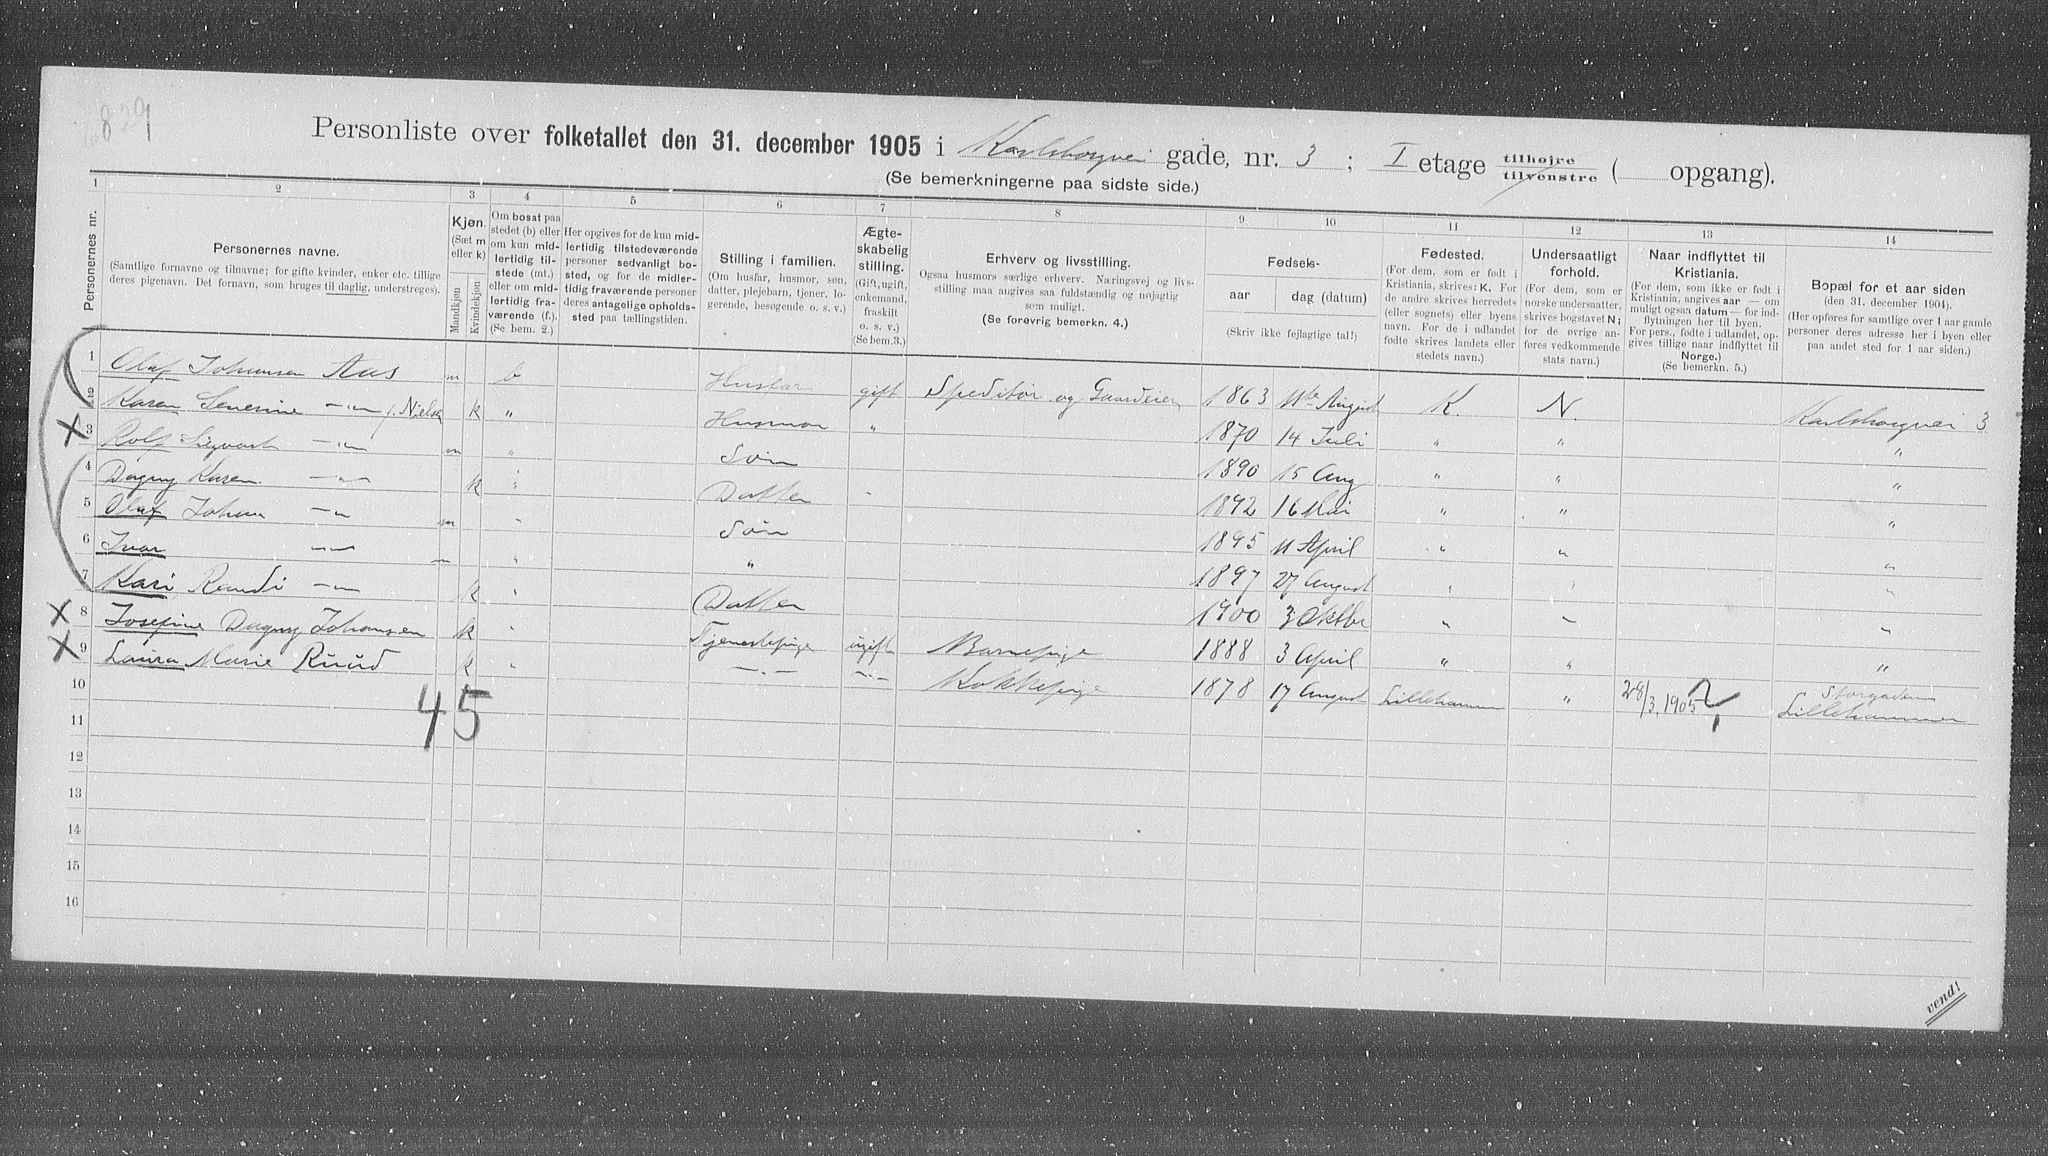 829
Personliste over folketallet den 31. december 1905 i Karlsborgvei gade, nr. 3 ; I etage tilhøjre tilvenstre ( opgang).
(Se bemerkningerne paa sidste side.)
1 2 3 4 5 6 7 8 9 10 11 12 13 14
Personernes nr.
Personernes navne.
(Samtlige fornavne og tilnavne; for gifte kvinder, enker etc. tillige
deres pigenavn. Det fornavn, som bruges til daglig, understreges).
Kjøn.
(Sæt m
eller k)
Mandkjøn
Kvindekjøn
Om bosat paa
stedet (b) eller
om kun mid-
lertidig til-
stede (mt.)
eller om mid-
lertidig fra-
værende (f.).
(Se bem. 2.)
Her opgives for de kun mid-
lertidig tilstedeværende
personer sedvanlig bo-
sted, og for de midler-
tidig fraværende personer
deres antagelige opholds-
sted paa tællingstiden.
Stilling i familien.
(Om husfar, husmor, søn,
datter, plejebarn, tjener, lo-
gerende, besøgende o. s. v.)
Ægte-
skabelig
stilling.
(Gift, ugift,
enkemand,
fraskilt
o. s. v.)
(Se bem. 3.)
Erhverv og livsstilling.
Ogsaa husmors særlige erhverv. Næringsvej og livs-
stilling maa angives saa fuldstændig og nøjagtig
som muligt.
(Se forøvrig bemerkn. 4.)
Fødsels-
aar dag (datum)
(Skriv ikke fejlagtige tal!)
Fødested.
(For dem, som er født i
Kristiania, skrives: K. For
de andre skrives herredets
(eller sognets) eller byens
navn. For de i udlandet
fødte skrives landets eller
stedets navn.)
Undersaatligt
forhold.
(For dem, som er
norske undersaatter,
skrives bogstavet N;
for de øvrige an-
føres vedkommende
stats navn.)
Naar indflyttet til
Kristiania.
(For dem, som ikke er født i
Kristiania, angives aar — om
muligt ogsaa datum — for ind-
flytningen her til byen.
For pers., fødte i udlandet, op-
gives tillige naar indflyttet til
Norge.)
(Se bemerkn. 5.)
Bopæl for et aar siden
(den 31. december 1904).
(Her opføres for samtlige over 1 aar gamle
personer deres adresse her i byen eller
paa andet sted for 1 aar siden.)
1 Olaf Johansen Aas m b Husfar gift Speditør og Gaardeier 1863 11te August K. N. Karlsborgvei 3
2 Karen Severine —„— f. Nielsen k „ Husmor „ 1870 14 Juli „ „ „
3 Rolf Sigvart —„— m „ Søn 1890 15 Aug „ „ „
4 Dagny Karen —„— k „ Datter 1892 16 Mai „ „ „
5 Olaf Johan —„— m „ Søn 1895 11 April „ „ „
6 Ivar —„— m „ „ 1897 27 August „ „ „
7 Kari Randi —„— k „ Datter 1900 3 Oktbr „ „ „
8 Josefine Dagny Johansen k „ Tjenestepige ugift Barnepige 1888 3 April „ „ „
9 Laura Marie Ruud k „ —„— —„— Kokkepige 1878 17 August Lillehammer „ 28/3, 1905 Storgaden Lillehammer
10
45
11
12
13
14
15
16
vend!